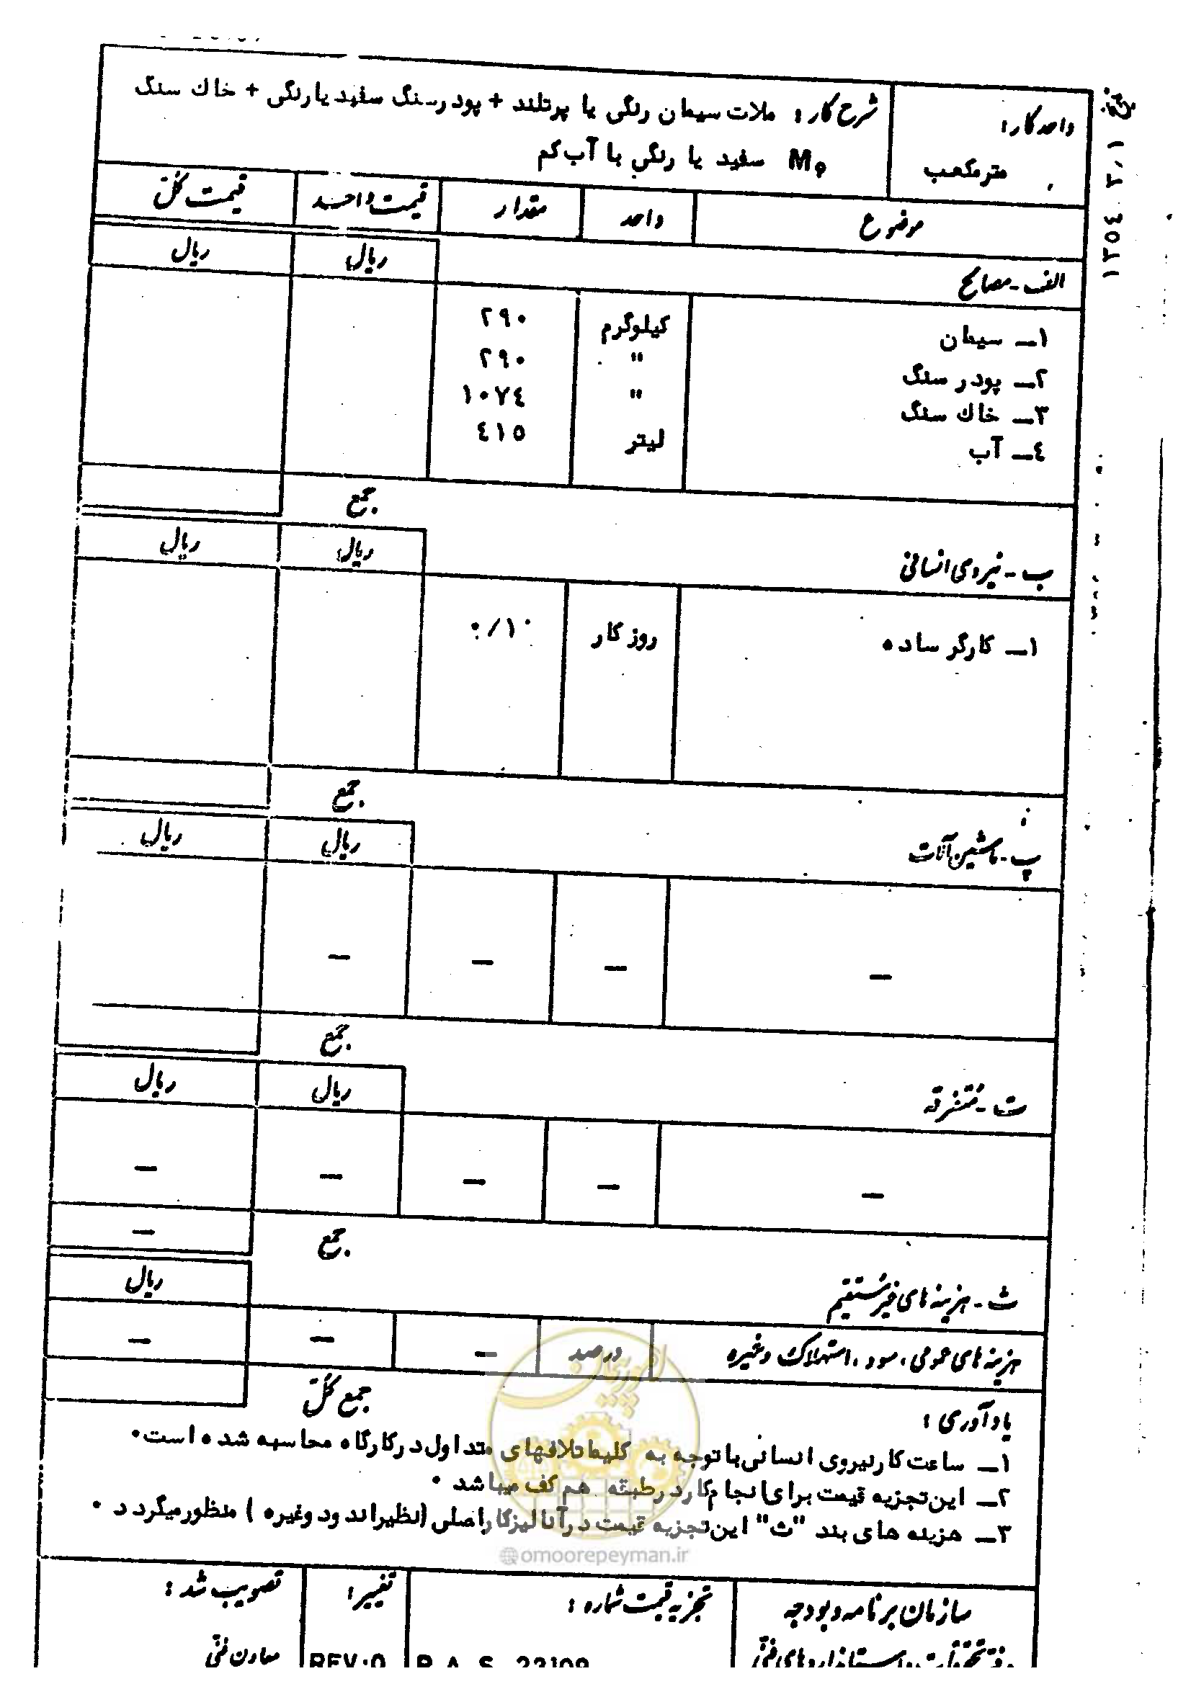 واحد کار:
مترمکعب
شرح کار: ملات سیمان رنگی یا پرتلند + پودرسنگ سفید یا رنگی + خاك سنگ
سفید یا رنگی با آب کم M9
۱۳۵٤ ۳٫۱
موضوع واحد مقدار قیمت واحد قیمت کل
الف - مصالح ریال ریال
۱ــ سیمان کیلوگرم ۲۹۰
۲ــ پودر سنگ " ۲۹۰
۳ــ خاك سنگ " ۱۰۷٤
٤ــ آب لیتر ٤۱٥
جمع
ب - نیروی انسانی ریال ریال
۱ــ کارگر ساده روز کار ۰/۱۰
جمع
پ - ماشین آلات ریال ریال
— — — —
جمع
ت - متفرقه ریال ریال
— — — — —
جمع —
ث - هزینه های غیر مستقیم ریال
هزینه های عمومی ، سود ، استهلاک و غیره درصد — — —
جمع کل
یادآوری :
۱ــ ساعت کار نیروی انسانی با توجه به کلیه اتلافهای متداول در کارگاه محاسبه شده است۰
۲ــ این تجزیه قیمت برای انجام کار در طبقه هم کف میباشد ۰
۳ــ هزینه های بند "ث" این تجزیه قیمت در آنالیز کار اصلی (نظیر اندود وغیره ) منظور میگردد ۰
امور پیمان
@omoorepeyman.ir
سازمان برنامه و بودجه
تجزیه قیمت شماره :
تغییر:
تصویب شد :
معاون فنی
REV:0
B.A.S. 23109